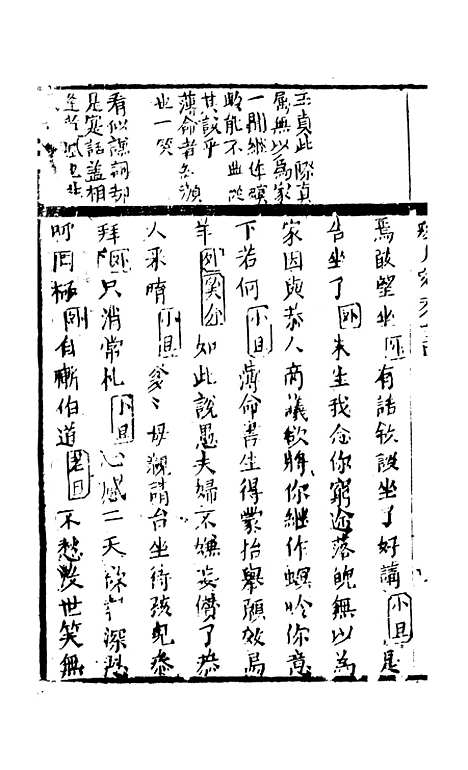 玉貞此際真
屬無以為家
一聞継作螟
蛉能不曲從
其議乎
薄命者多須
也一笑
看似謀詞却
是寔話蓋相
焉敢望坐外有話欲説坐了好講小旦是
告坐了外朱生我念你窮途落魄無以為
家因與恭人商議欲將你継作螟蛉你意
下若何小旦薄命書生得蒙抬舉願效烏
羊外笑介如此説愚夫婦不嫌妄僣了恭
人来唷小旦爹〻母親請台坐待孩兒恭
拜外只消常札小旦心感二天深恩
罔極外自慚伯道老旦不愁後世笑無